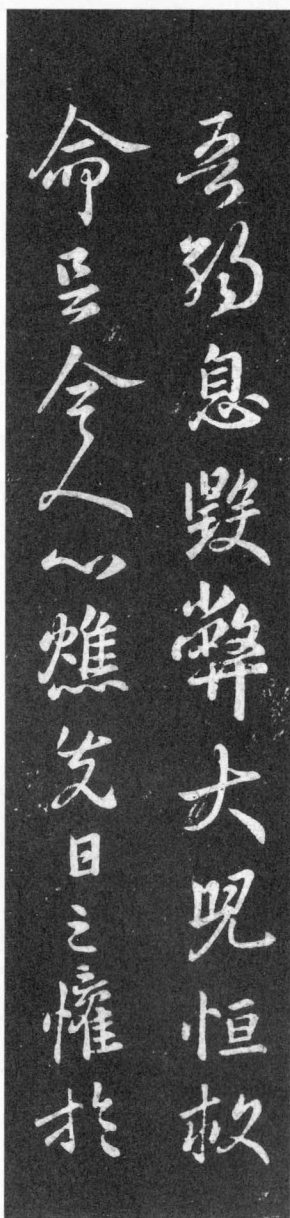 吾弱息毀弊大兒恒救
命令人心燋先日之懽於